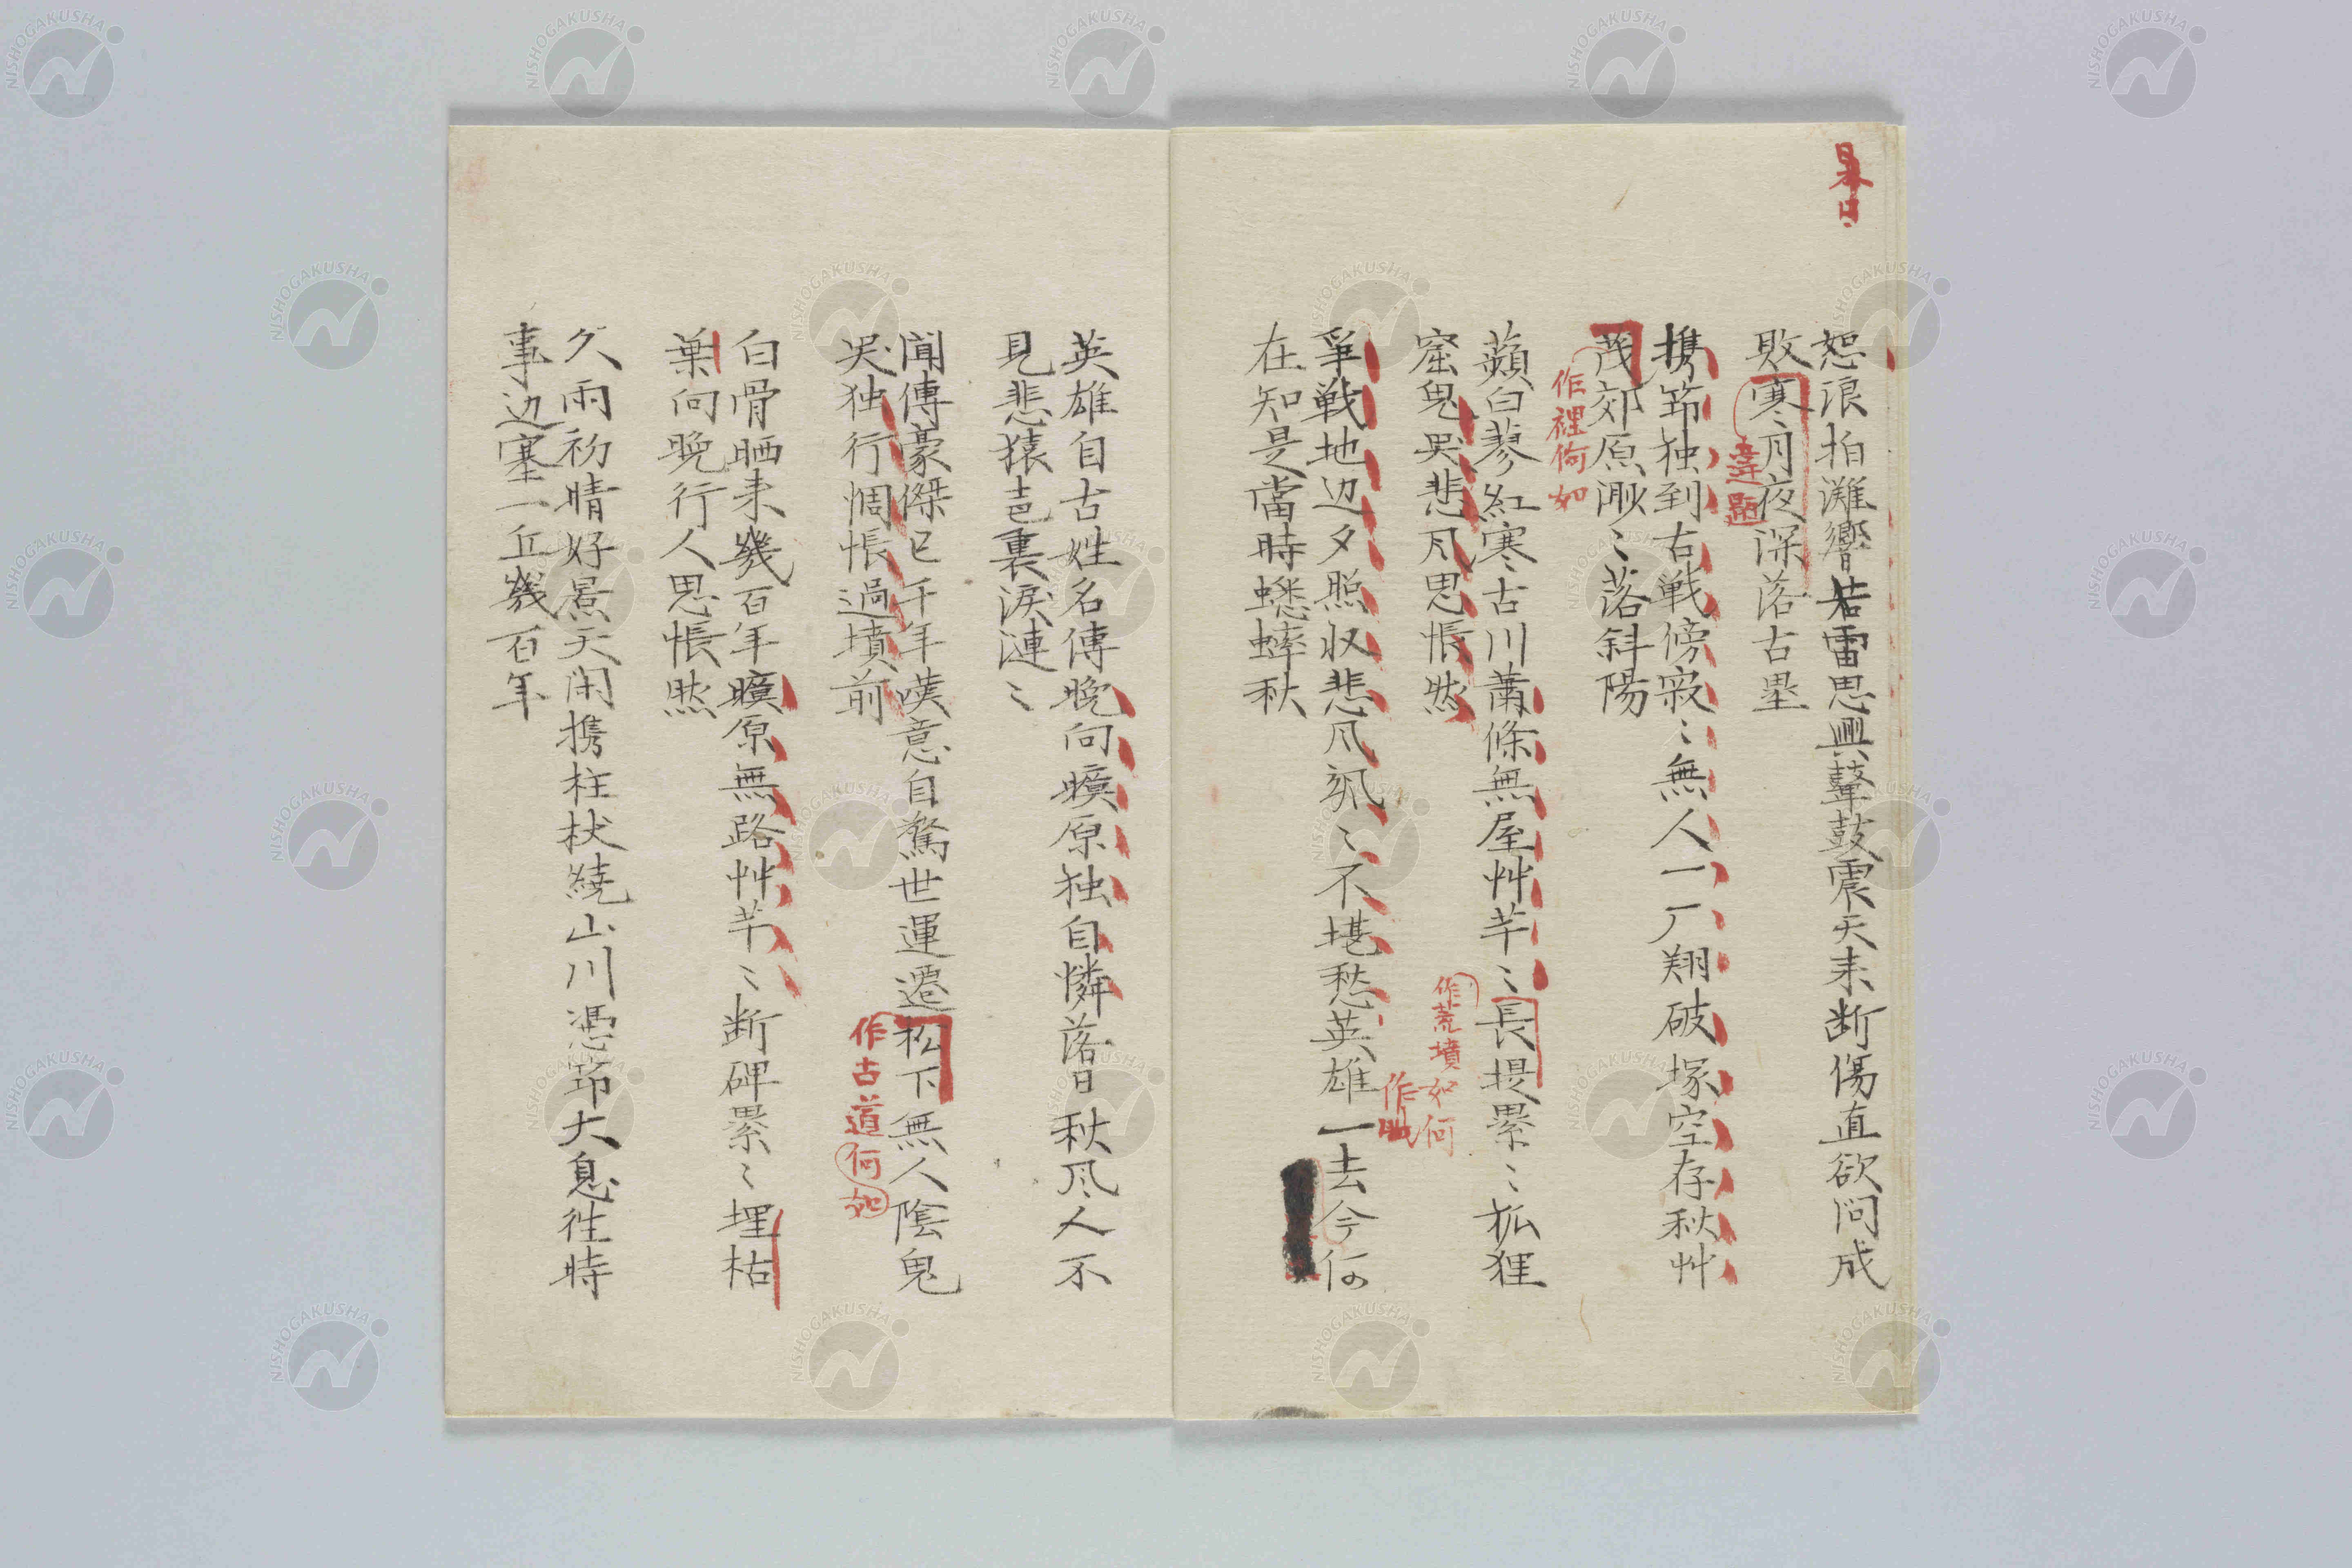 怒浪拍灘響若雷思輿鼙鼓震天来断傷直欲問成
敗寒月夜深落古塁
違題
携筇独到古戦傍寂〻無人一厂翔破塚空存秋艸
茂郊原渺〻落斜陽
作裡何如
蘋白蓼紅寒古川蕭條無屋艸芊〻長堤累〻狐狸
窟鬼哭悲风思悵然
作荒墳如何
争戦地辺夕照収悲风飒〻不堪愁英雄一去今何
作
在知是當時蟋蟀秋
英雄自古姓名傳晩向曠原独自憐落日秋风人不
見悲猿声裏涙漣〻
聞傳豪傑已千年嘆意自驚世運遷松下無人陰鬼
哭独行惆悵過墳前
作古道何如
白骨晒来幾百年曠原無路艸芊〻断碑累〻埋枯
葉向晩行人思悵然
久雨初晴好景天閑携柱杖繞山川憑筇大息往時
事辺塞一丘幾百年
NISHOGAKUSHA